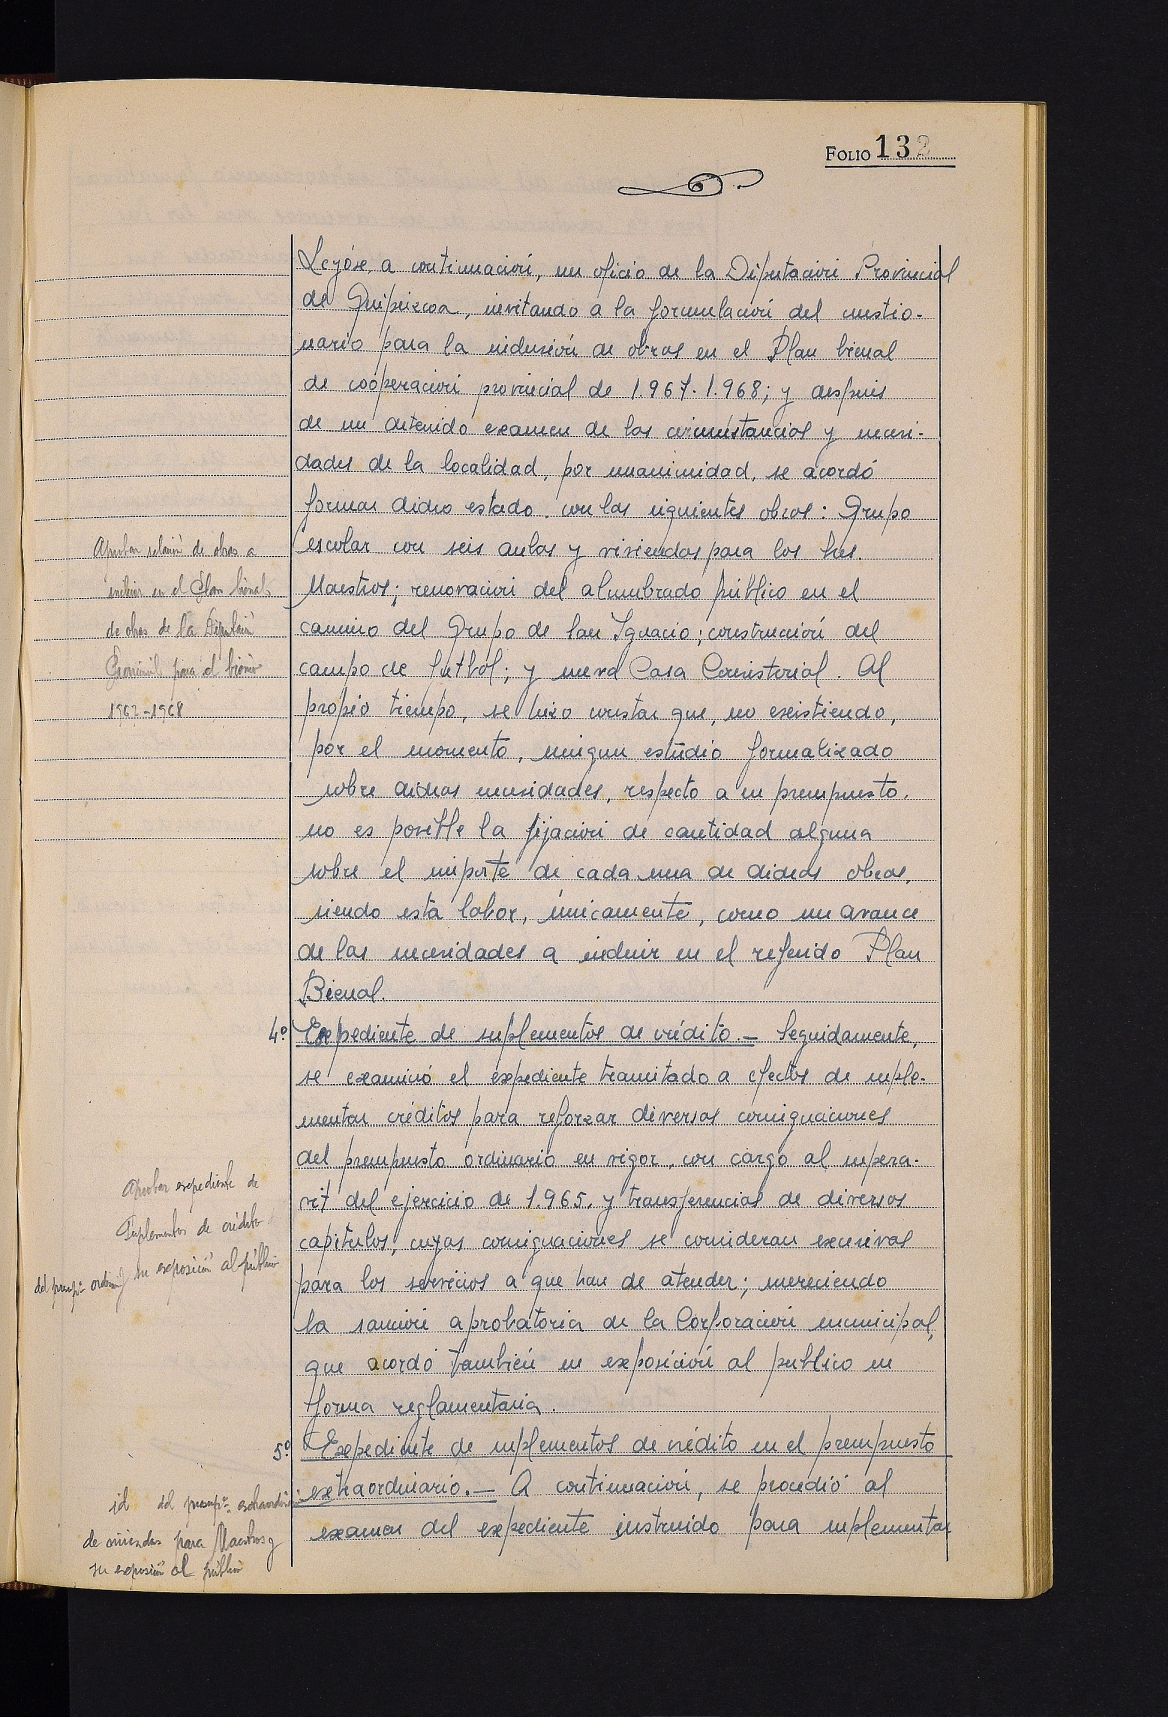 FOLIO 132
Leyóse, a continuación, un oficio de la Diputación Provincial
de Guipúzcoa, invitando a la formulación del cuestio-
nario para la inclusión de obras en el Plan bienal
de cooperación provincial de 1.967-1.968; y después
de un detenido examen de las circunstancias y necesi-
dades de la localidad, por unanimidad, se acordó
formar dicho estado con las siguientes obras: Grupo
escolar con seis aulas y viviendas para los Sres.
Aprobar relación de obras a
incluir en el Plan bienal
de obras de la Diputación
Provincial para el bienio
1967-1968
Maestros; renovación del alumbrado público en el
camino del Grupo de San Ignacio; construcción del
campo de futbol; y nueva Casa Consistorial. Al
propio tiempo, se hizo constar que, no existiendo,
por el momento, ningun estudio formalizado
sobre dichas necesidades, respecto a su presupuesto,
no es posible la fijación de cantidad alguna
sobre el importe de cada una de dichas obras,
siendo esta labor, únicamente, como un avance
de las necesidades a incluir en el referido Plan
Bienal.
4º Expediente de suplementos de crédito.- Seguidamente,
se examinó el expediente tramitado a efectos de suple-
mentar créditos para reforzar diversas consignaciones
del presupuesto ordinario en vigor, con cargo al supera-
vit del ejercicio de 1.965, y transferencias de diversos
capítulos, cuyas consignaciones se consideran excesivas
para los servicios a que han de atender; mereciendo
la sanción aprobatoria de la Corporación municipal,
que acordó también su exposición al publico en
forma reglamentaria.
Aprobar expediente de
Suplementos de crédito
del presupº ordinario y su exposición al público
5º Expediente de suplementos de crédito en el presupuesto
extraordinario.- A continuación, se procedió al
examen del expediente instruido para suplementar
id del presupº extraordinario
de viviendas para Maestros y
su exposición al público